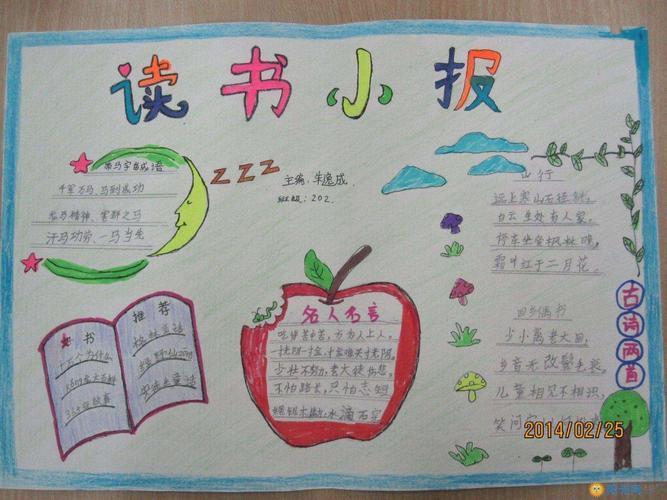 读书小报
带马字的成语
千军万马、马到成功
龙马精神、害群之马
汗马功劳、一马当先
ZZZ
主编:朱逸成
班级:202
山行
远上寒山石径斜,
白云生处有人家。
停车坐爱枫林晚,
霜叶红于二月花。
古诗两首
回乡偶书
少小离老大回,
乡音无改鬓毛衰。
儿童相见不相识,
笑问客
名人名言
吃得苦中苦,方为人上人。
一寸光阴一寸金,寸金难买寸光阴。
少壮不努力,老大徒伤悲。
不怕路长,只怕志短
绳锯木断,水滴石穿
书
推荐
十万个为什么
格林童话
安徒生童话
2014/02/25